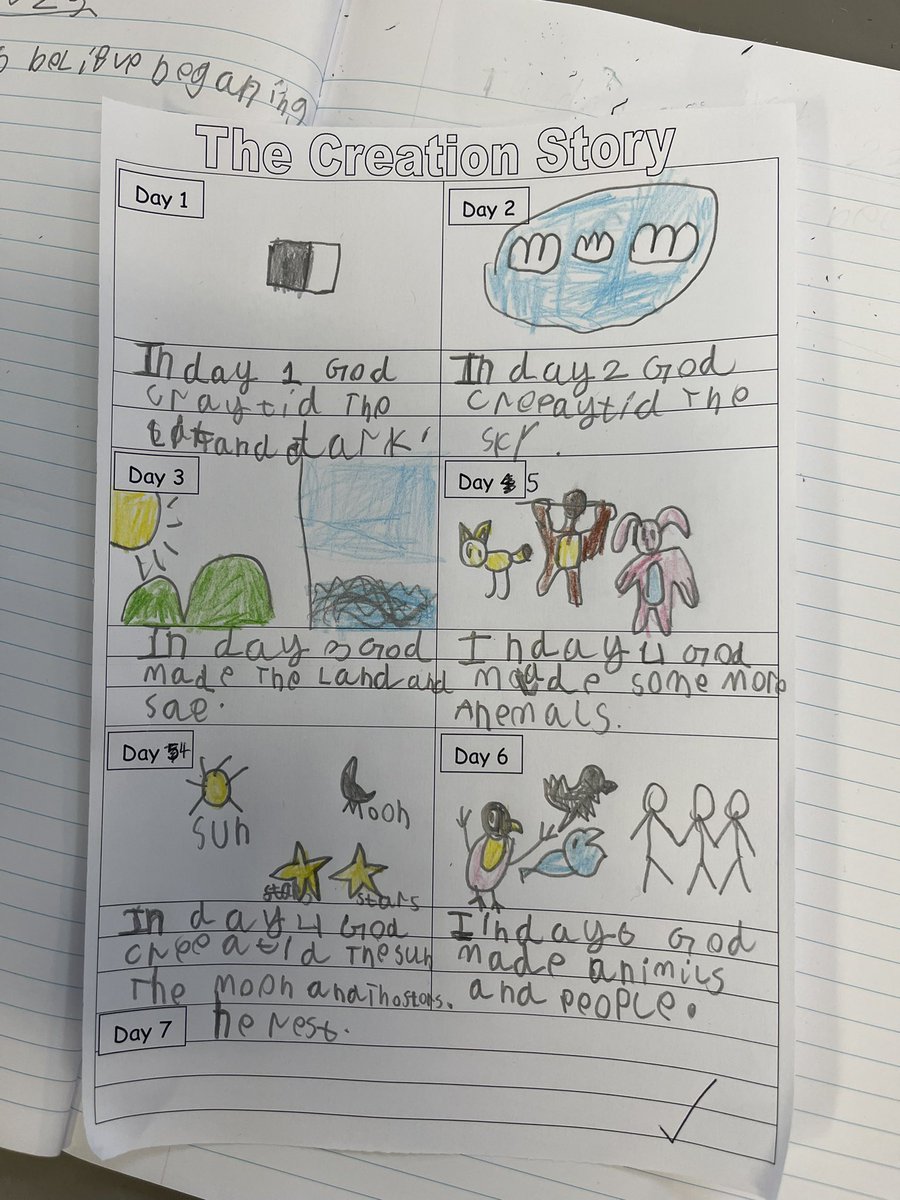 believe beganing
The Creation Story
Day 1
In day 1 God
craytid The
and dark.
Day 2
In day 2 God
creeaytid The
sky.
Day 3
In day 3 God
made The Land and
sae.
Day 5
Inday 4 God
made some more
Anemals.
Day 4
sun
Moon
stars
stars
In day 4 God
creeatid The sun
The moon and Tho stars.
Day 6
In day 6 God
made animils
and people.
Day 7
he rest.